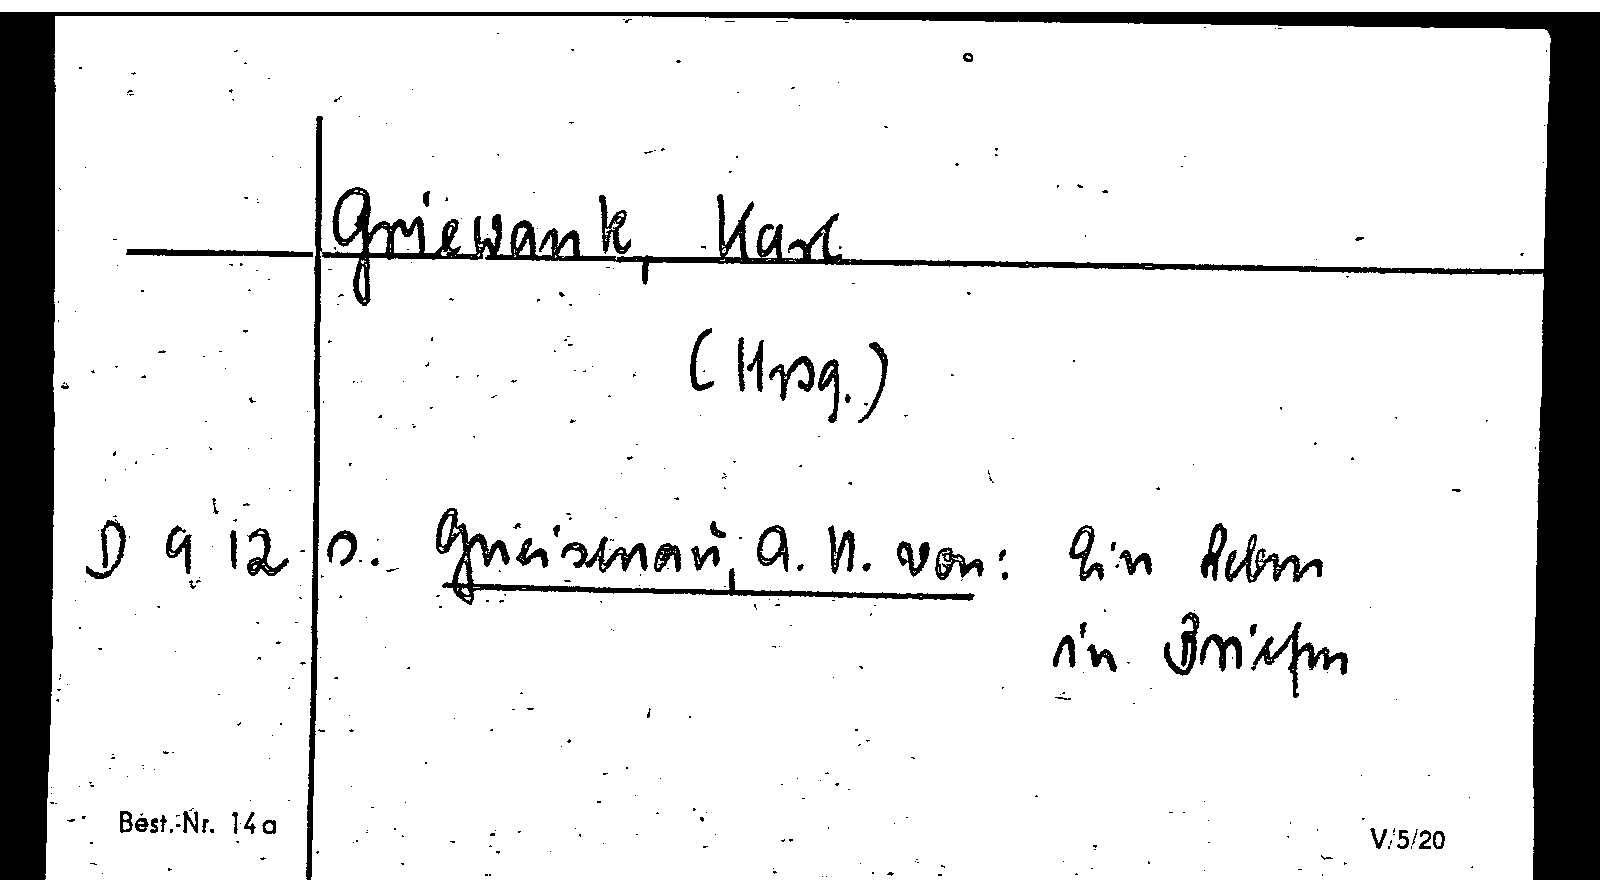 Griewank, Karl
(Hrsg.)
D 912 s. Gneisenau, A. N. von: Ein Leben
in Briefen
Best.-Nr. 14a
V/5/20